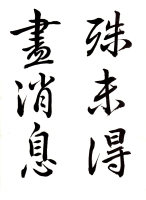 殊未得
盡消息